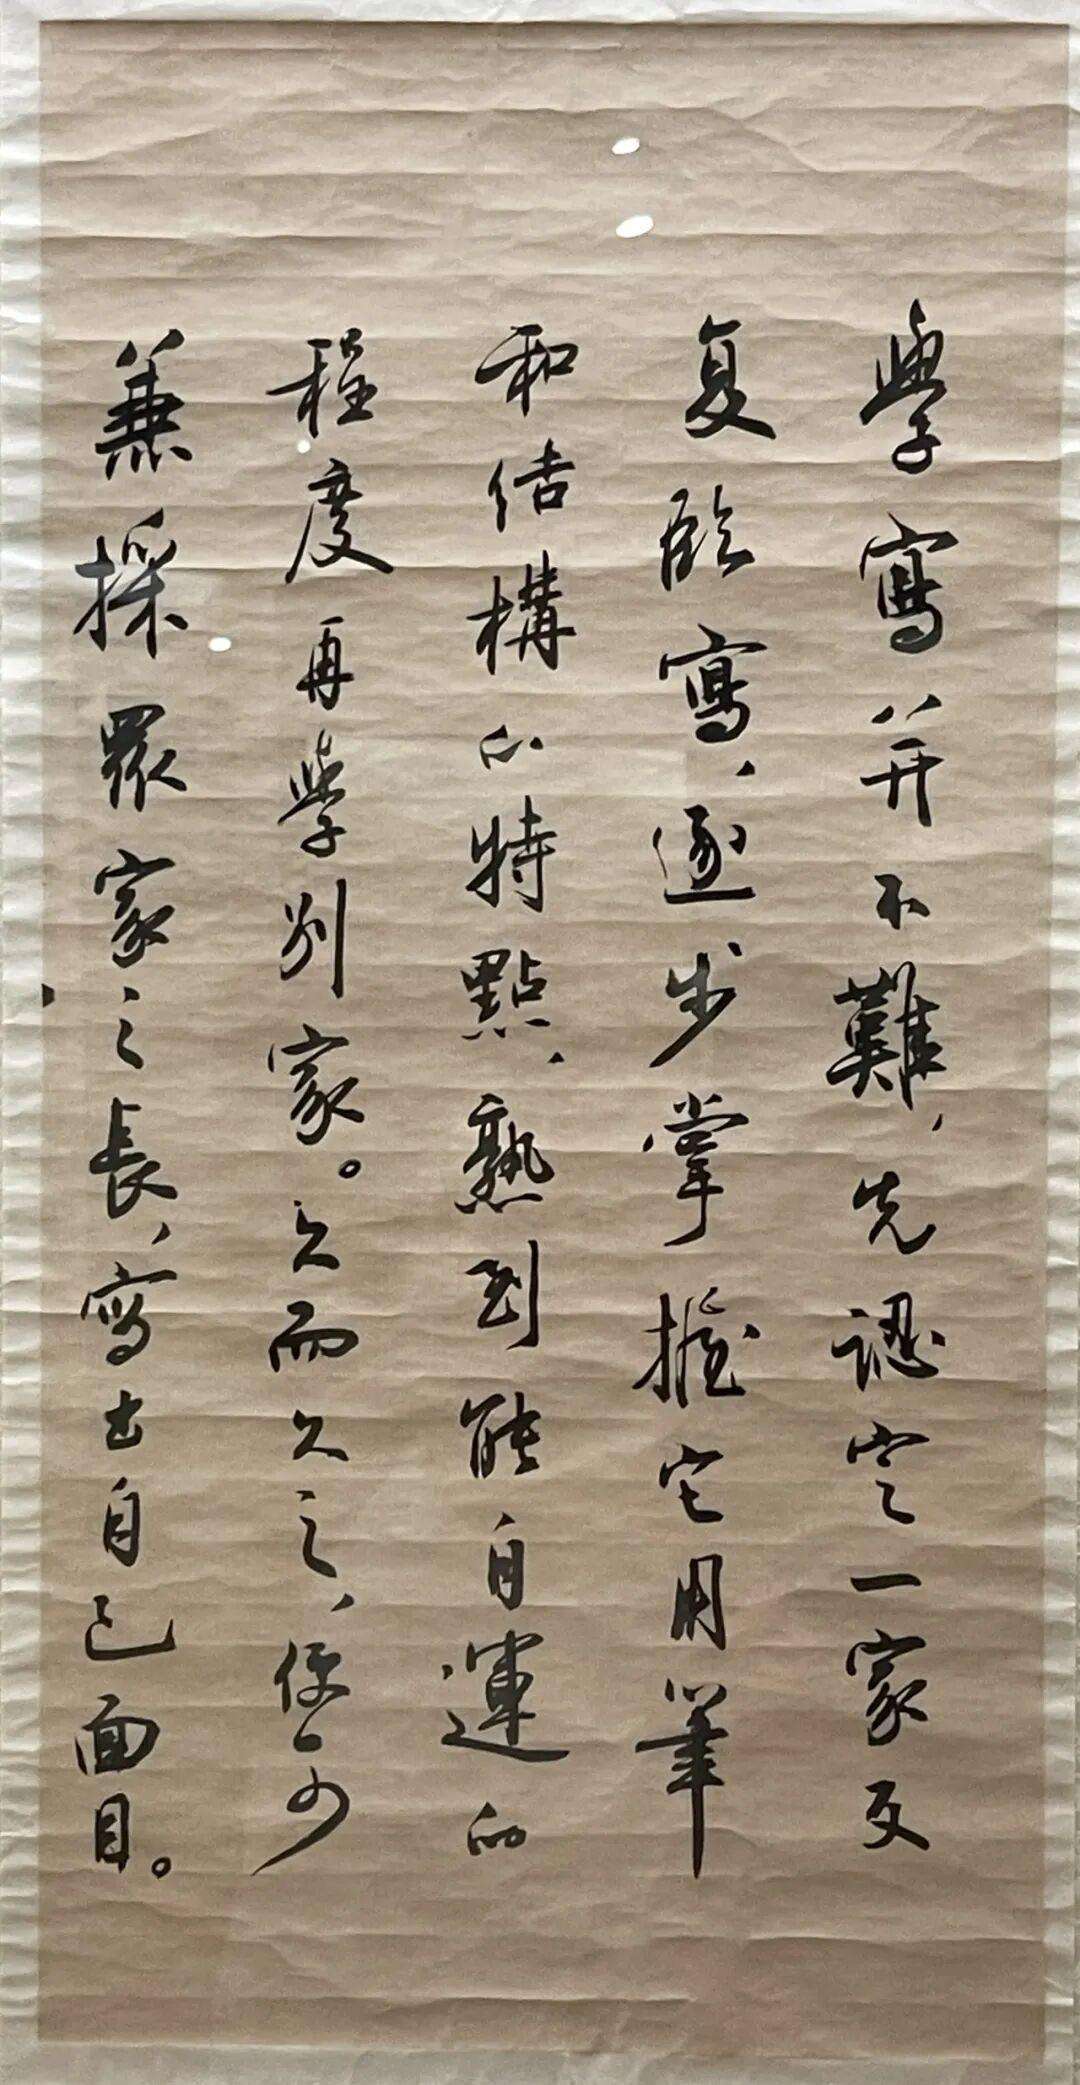 學寫并不難，先認定一家反
复臨寫，逐步掌握它用筆
和结構的特點，熟到能自運的
程度再學别家。久而久之，便可
兼採眾家之長，寫出自己面目。